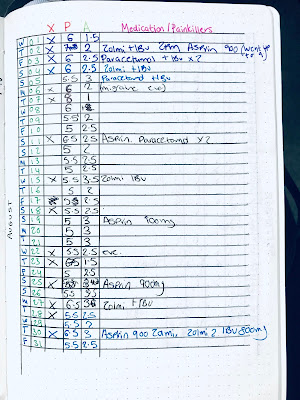 X P A Medication/Painkillers
W 01 X 6 1.5
T 02 X 2 Zolmi + IBU Aspirin 900 (went to
F 03 X 6 2.5 Paracetamol + IBU x2
S 04 X 6 2.5 Zolmi + IBU
S 05 5.5 3 Paracetamol + IBU
M 06 X 6 2 (migraine eve)
T 07 X 8 1
W 08 6
T 09 5.5 2
F 10 5 2.5
S 11 X 6.5 2.5 Aspirin Paracetamol x2
S 12 5 2
M 13 5.5 2.5
T 14 5 2.5
W 15 X 5.5 3.5 Zolmi IBU
T 16 5 2
F 17 2.5
S 18 X 5.5 2.5
S 19 5 3 Aspirin 900mg
M 20 5 3
T 21 5 3
W 22 X 5.5 2.5 eve.
T 23 X 1.5
F 24 5 2.5
S 25 X Aspirin 900mg
S 26 5.5 3.5
M 27 X 6.5 Zolmi + IBU
T 28 X 5.5 2.5
W 29 5.5 2
T 30 X 6.5 3 Aspirin 900 2am, Zolmi 2 IBU 800mg
F 31 5.5 2.5
AUGUST